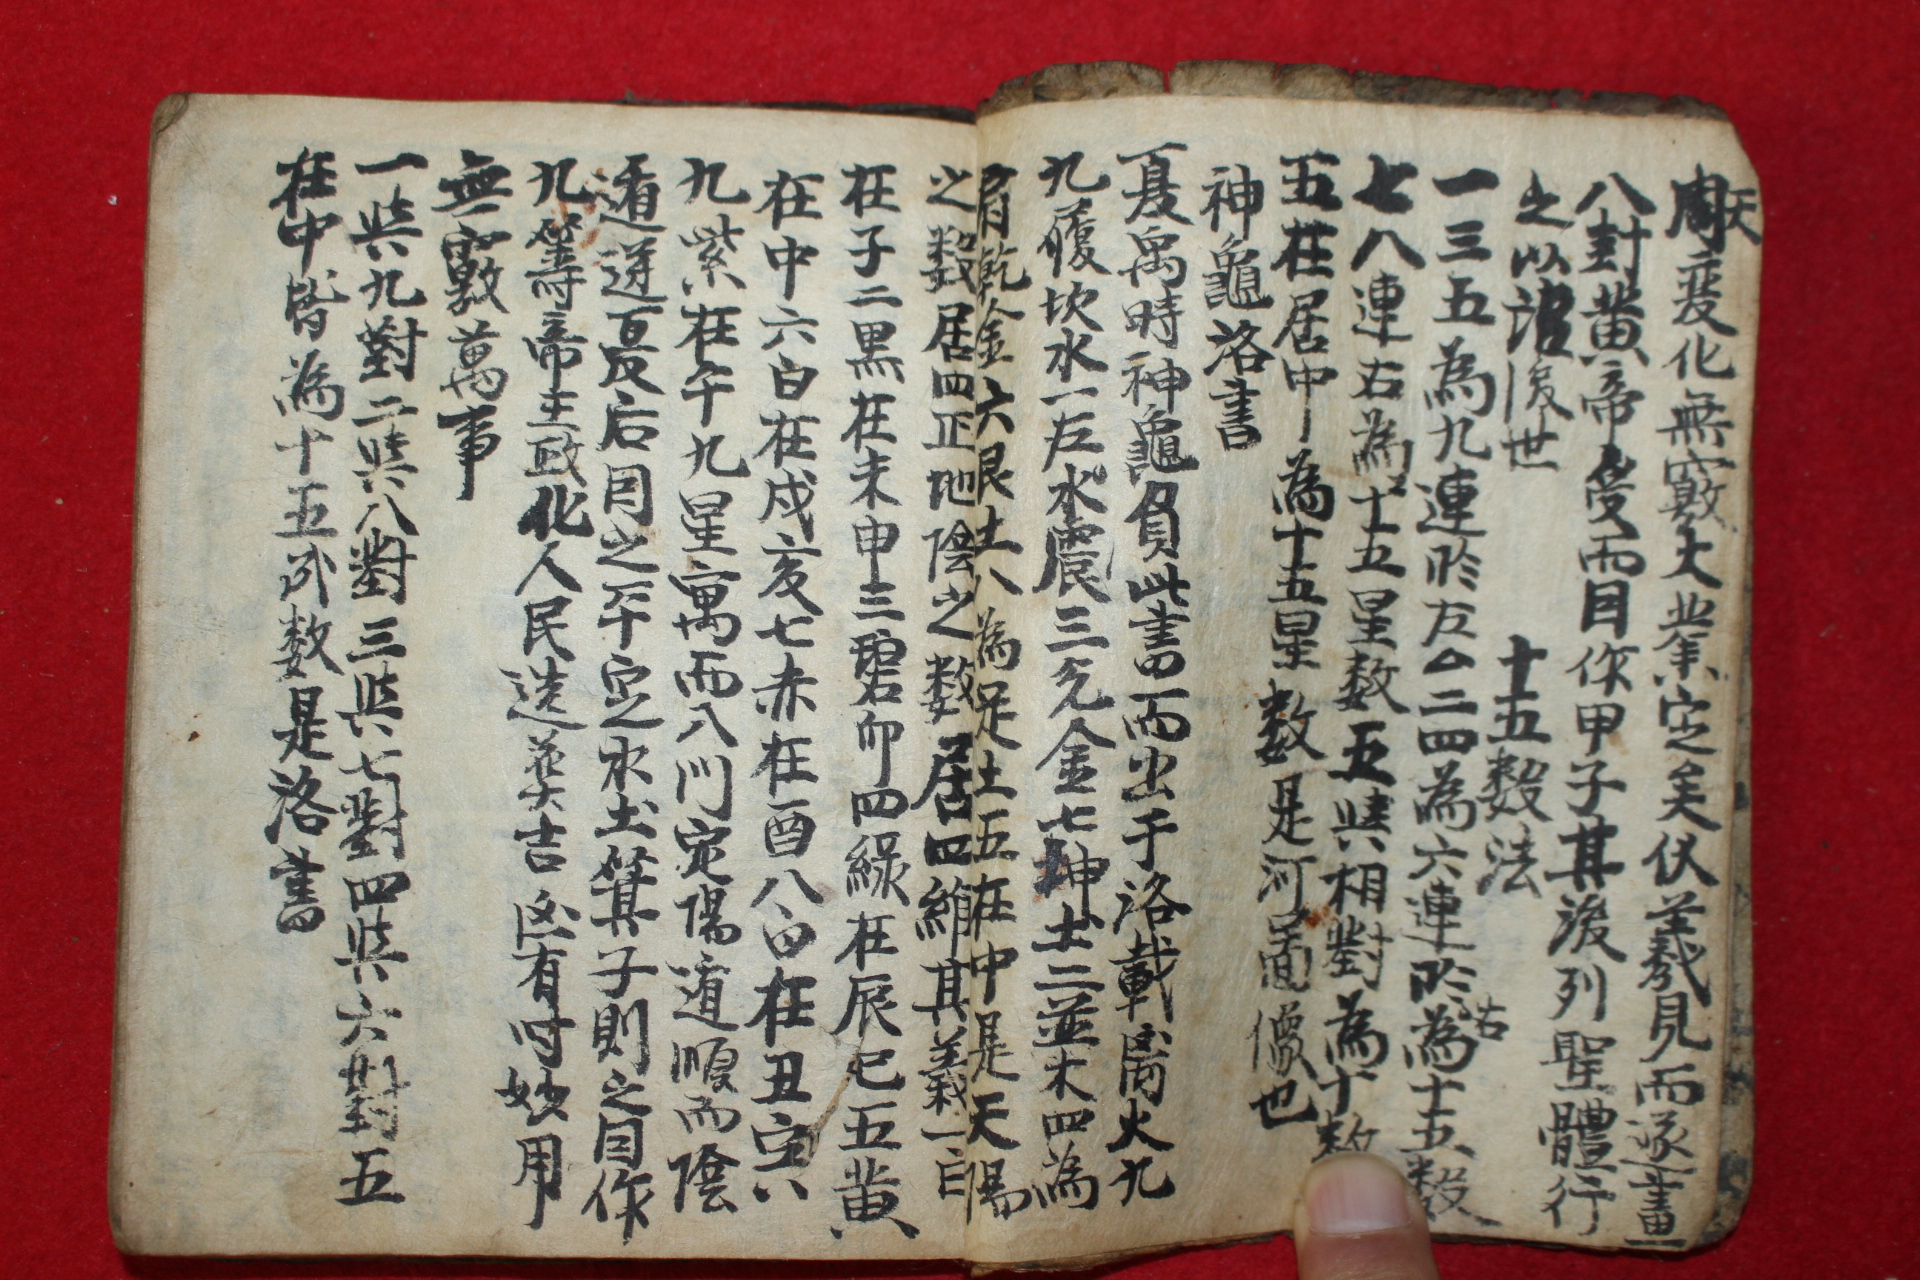 周天變化無窮大業定矣伏羲見而逐畫
八封黃帝受而目作甲子其後列聖體行
之以詔後世
十五数法
一三五為九連於左二四為六連於右為十五数
七八連右為十五星数五與相對為十数
五在居中為十五星数是河圖像也
神龜洛書
夏禹時神龜負此書而出于洛載离火九
九履坎水一左水震三兌金七坤土二並木四為
肩乾金六艮土八為足土五在中是天陽
之数居四正地陰之数居四維其義一白
在子二黑在未申三碧卯四綠在辰巳五黃
在中六白在戍亥七赤在酉八白在丑寅
九紫在午九星寓而八門定陽遁順而陰
遁逆夏后目之平定水土箕子則之目作
九籌帝王政化人民造葬吉凶有時妙用
無窮萬事
一與九對二與八對三與七對四與六對五
在中皆為十五数是洛書